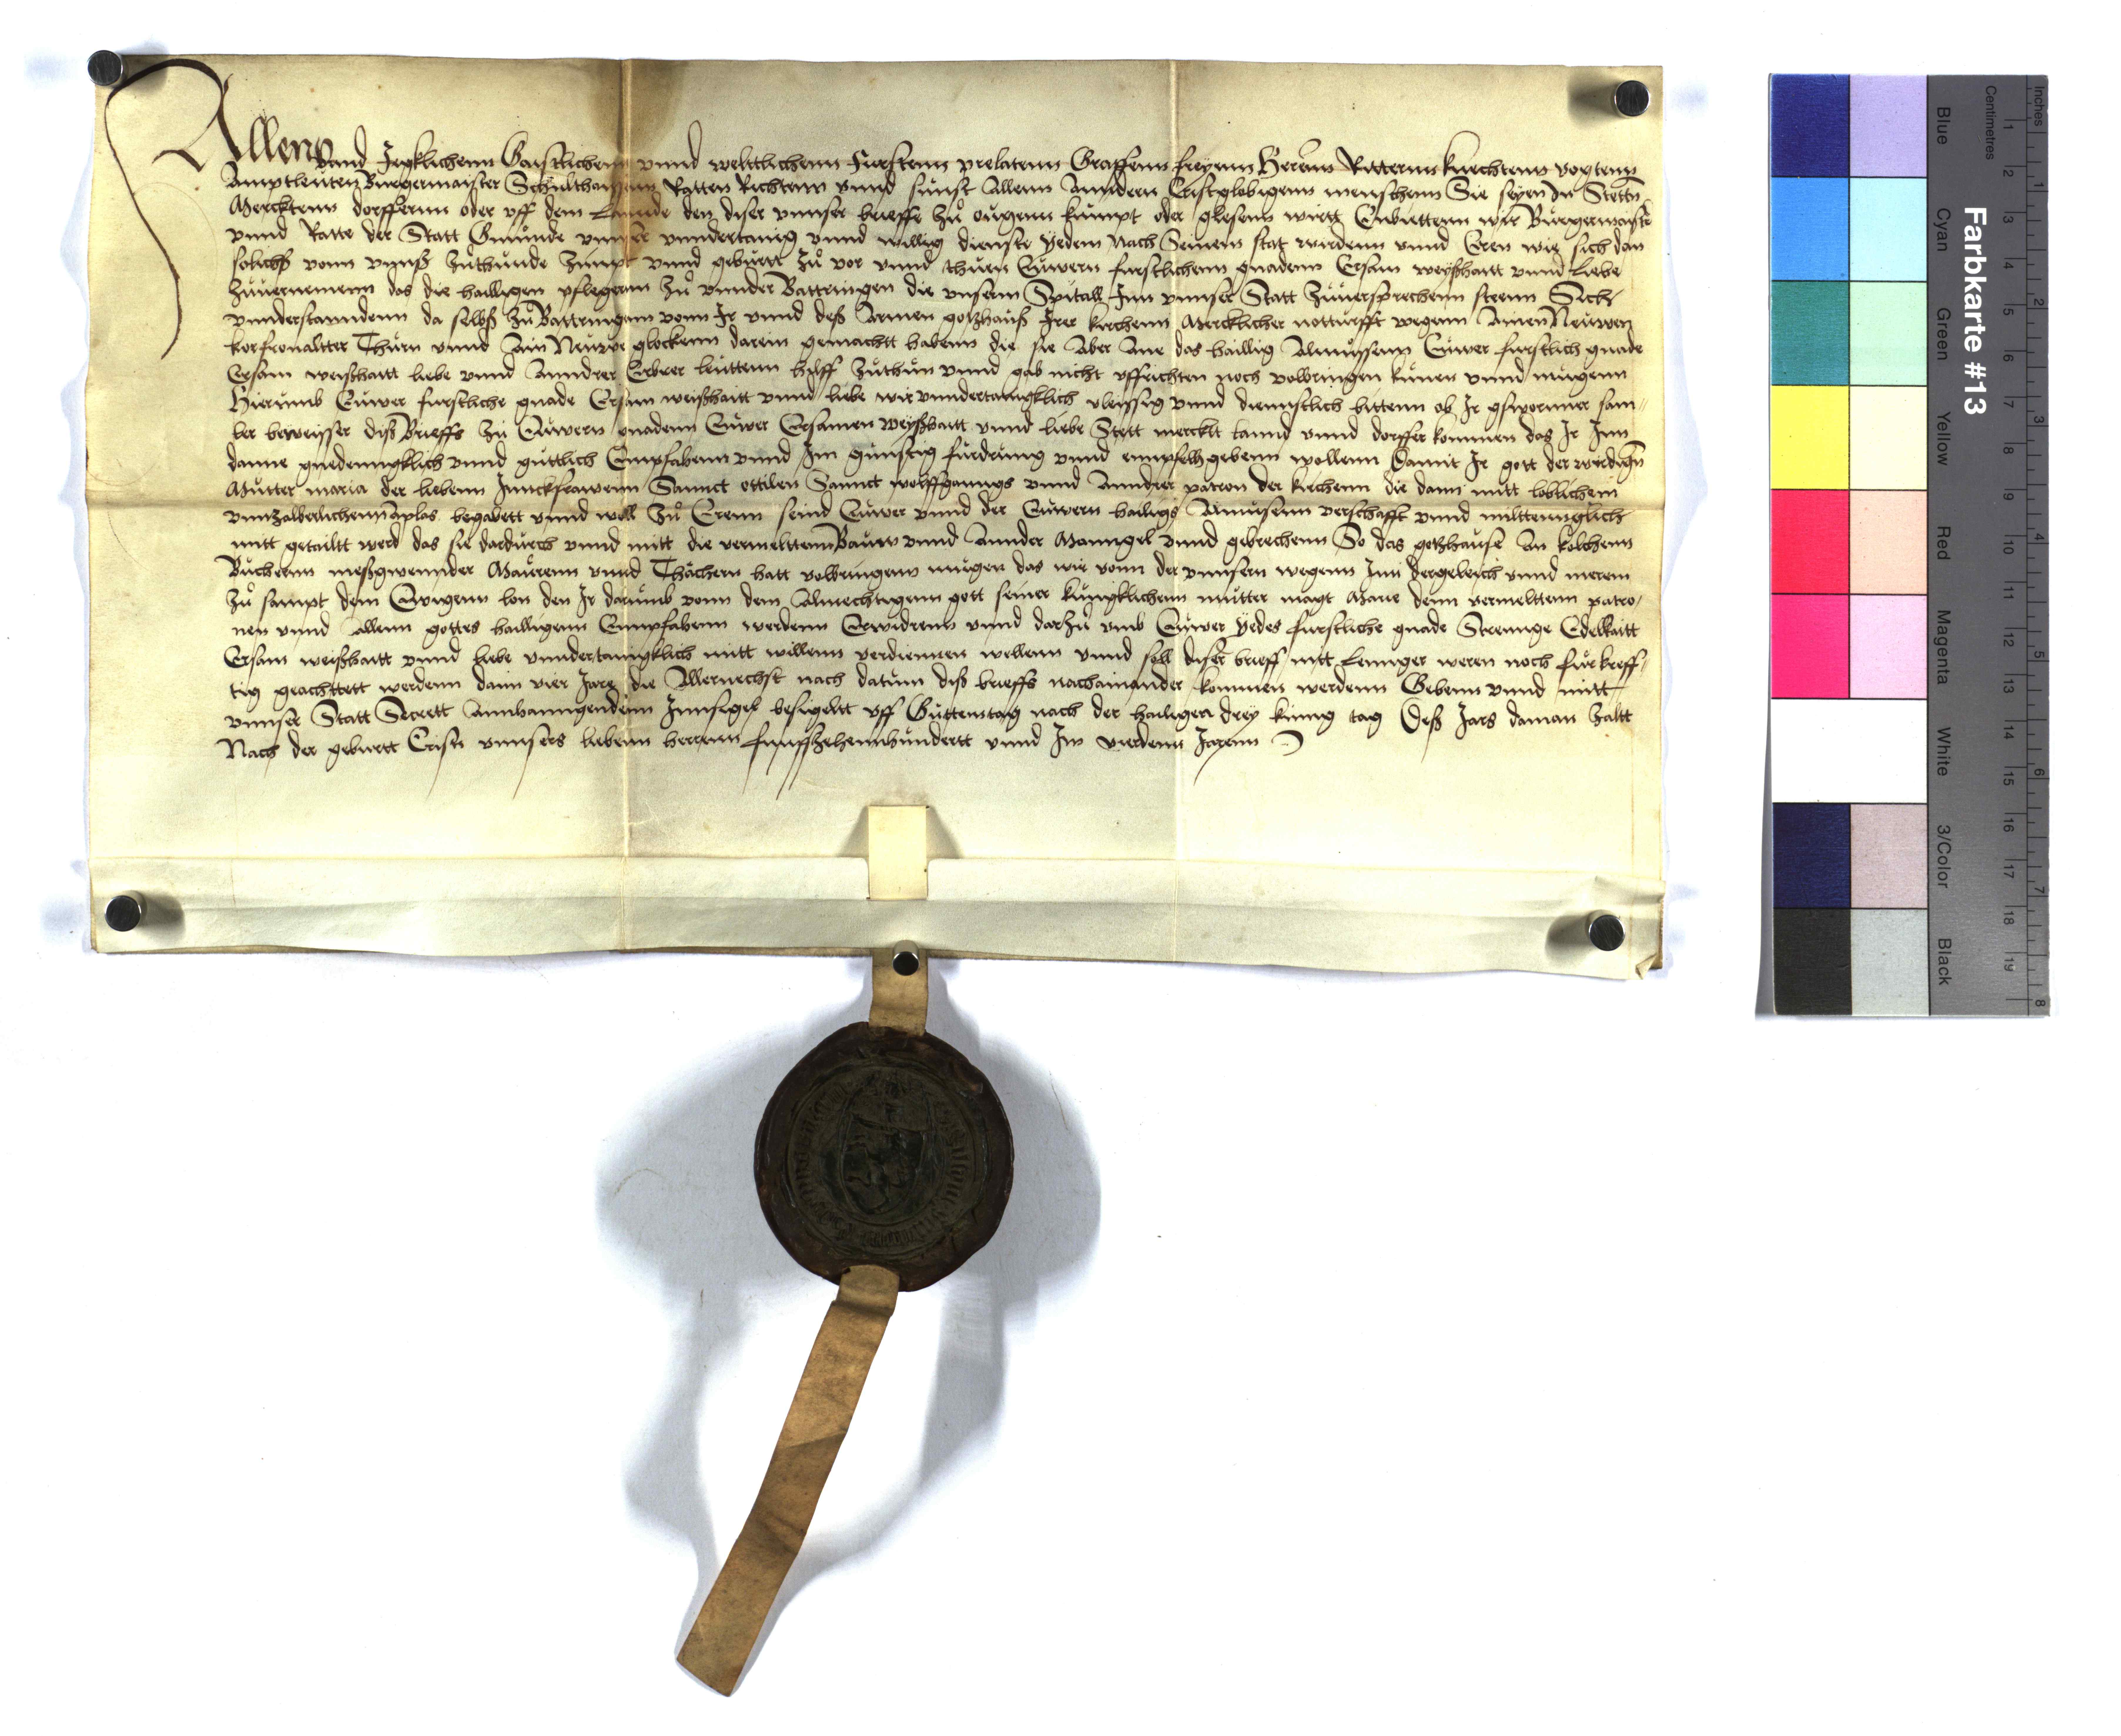 Allenn vnnd Jegklichenn Gaistlichenn vnnd welttlichenn Fürstenn prelatenn Graffenn freyenn Herenn Ritternn Knechtenn vogtenn
Amptleuten Burgermaister Schulthaissenn Ratten Richtern vnnd sunst Allenn Anndern Cristglobigenn menschenn Sie seyen In Stettn
Mercktenn dorffernn oder vff dem Lannde den diser vnnser brieffe zů ougenn kumpt oder glesenn wirtt Enbiettenn wir Burgermaister
vnnd Ratte der Statt Gmünde vnnser vnndertanig vnnd willig dienste yedem Nach Seinem stat wirdenn vnnd Eren wie sich dan
solichs vonn vnnß zuthunde zimpt vnnd geburtt zů vor vnnd thuen Euwern furstlichenn gnadenn Ersam weyßhaitt vnnd Liebe
zuuernemenn das die hailligen pflegernn zů vnnder Battringen die vnserm Spitall Inn vnnser Statt zuuersprechenn steenn Sich
vnnderstanndenn da selbß zů Battringenn vonn Jr vnnd deß Armen gotzhauß Jrer kirchenn Mercklicher notturfft wegenn Ainen Neuwen
korfronaltter Thurn vnnd Ain Neuwe glockenn darein gemachtt habenn die sie Aber Ane das haillig Almusenn Euwer furstlich gnade
Ersam weißhaitt liebe vnnd Anndrer Erbrer leuttenn hilff zůthun vnnd gab nicht vffrichten noch volbringen kunen vnnd mugenn
Hierumb Euwer furstliche gnade Ersam weißhaitt vnnd liebe wir vnndertanigklich vleissig vnnd diennstlich bittenn ob Jr gsworner sam=
ler beweisser diß Brieffs zu Euwern gnadenn Euwer Ersamen weyßhaitt vnnd liebe Stett mercktt lannd vnnd dorffer kommen das Jr Inn
danne gnedenngklich vnnd guttlich Empfahenn vnnd Im gunstig furdrung vnnd empfelh gebenn wollenn Damit Jr gott der wirdigen
Mutter maria der liebenn Junckfrawenn Sannct ottilen Sannct wolffganngs vnnd Anndrer patron der kirchenn die dann mitt loblichem
vnnzalberlichemm Aplas begabett vnnd woll zů Erenn seind Euwer vnnd der Euwern hailigs Almusenn verschafft vnnd milttenngklich
mitt getailtt werd das sie dardurch vnnd mitt die vermelttenn Bauw vnnd Annder Manngel vnnd gebrechenn So das gotzhause An kelchenn
Büchernn meßgwennder Maurenn vnnd Thächern hatt volbringenn mugen das wir vonn der vnnsern wegenn Inn dergeleich vnnd merem
zů sampt dem Ewigenn lon den Jr darumb vonn dem Almechtigenn gott seiner kungklichenn mutter magt Marie denn vermelttenn patro=
nen vnnd Allenn gottes hailligenn Empfahenn werdenn Erwidrenn vnnd darzů vmb Euwer yedes furstliche gnade Strennge Edelkaitt
Ersam weißhaitt vnnd liebe vnndertanigklich mitt willenn verdiennen wellenn vnnd soll diser brieff nitt Lennger weren noch fur kreff=
tig geachttett werdenn dann vier Jare die Allernechst nach datum diß brieffs nachainander kommen werdenn Gebenn vnnd mitt
vnnser Statt Secrett Annhanngendenn Jnnsigel besigeltt vff Guttemtag nach der hailigen drey kunig tag Deß Jars daman zaltt
Nach der geburtt Cristi vnnsers liebenn herrenn funffzehennhundertt vnnd Jm vierdenn Jarenn
Farbkarte #13
Centimetres
Inches
Blue
Cyan
Green
Yellow
Red
Magenta
White
3/Color
Black
1 2 3 4 5 6 7 8 9 10 11 12 13 14 15 16 17 18 19
1 2 3 4 5 6 7 8